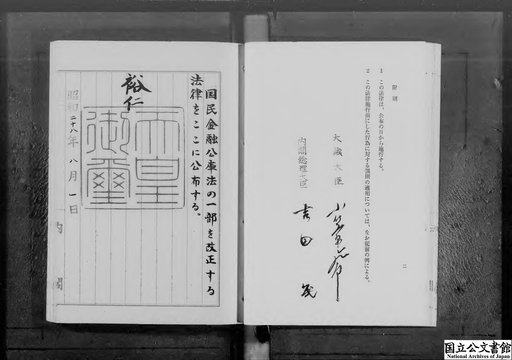 国民金融公庫法の一部を改正する
法律をここに公布する。
裕仁
天皇
御璽
昭和二十八年八月一日
内閣
附則
1 この法律は、公布の日から施行する。
2 この法律施行前にした行為に対する罰則の適用については、なお従前の例による。
大蔵大臣
内閣総理大臣 吉田茂
二
国立公文書館
National Archives of Japan